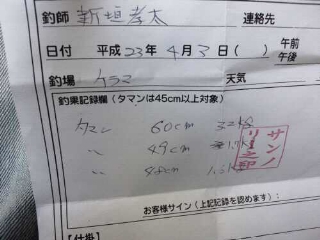 釣師 新垣孝太 連絡先
日付 平成23年4月3日( ) 午前
午後
釣場 ケラマ 天気
釣果記録欄 (タマンは45cm以上対象)
タマン 60cm 3.2kg
〃 49cm
〃 45cm
サンノリーエ印
お客様サイン (上記記録を認めます):
【仕掛